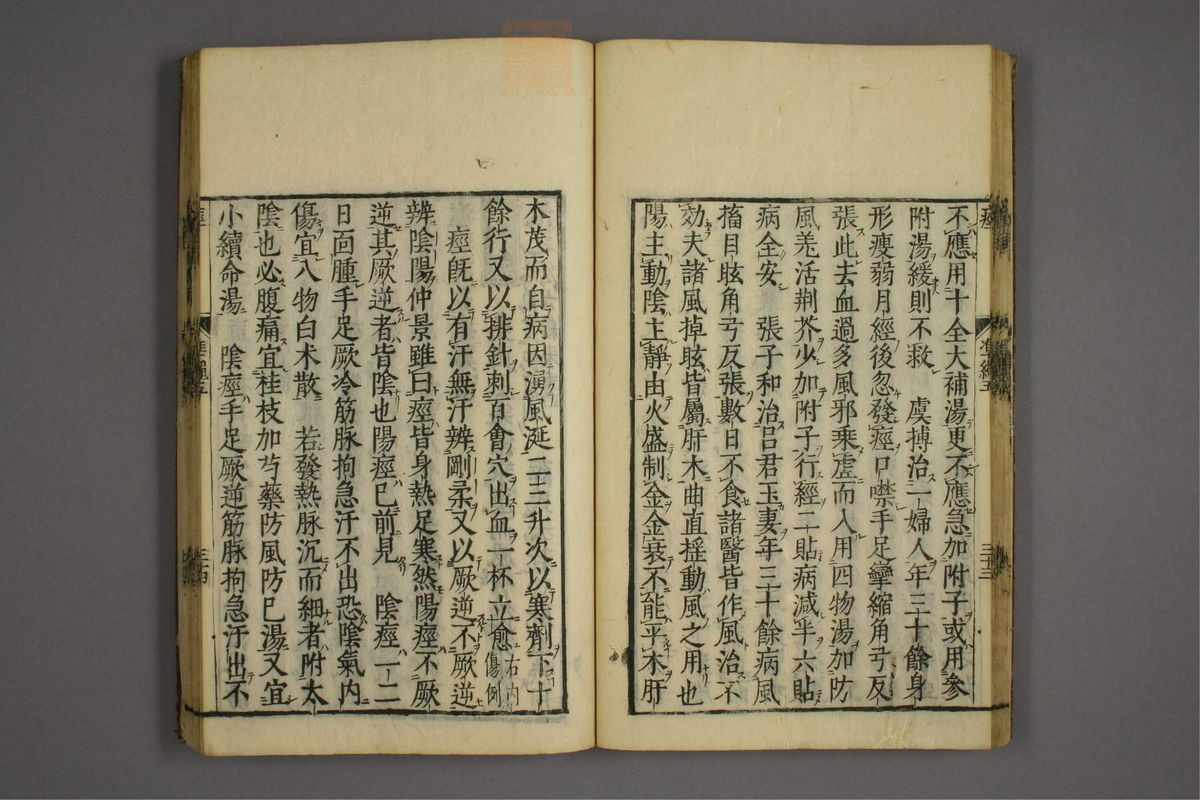 不應用十全大補湯更不應急加附子或用參
附湯緩則不救　虞摶治一婦人年三十餘身
形瘦弱月經後忽發痙口噤手足攣縮角弓反
張此去血過多風邪乘虛而入用四物湯加防
風羌活荆芥少加附子行經二貼病減半六貼
病全安　張子和治呂君玉妻年三十餘病風
搐目眩角弓反張數日不食諸醫皆作風治不
効夫諸風掉眩皆屬肝木曲直搖動風之用也
陽主動陰主靜由火盛制金金衰不能平木肝
木茂而自病因湧風涎二三升次以寒劑下十
餘行又以排針刺百會穴出血一杯立愈右内傷例
痙既以有汗無汗辨剛柔又以厥逆不厥逆
辨陰陽仲景雖曰痙皆身熱足寒然陽痙不厥
逆其厥逆者皆陰也陽痙已前見　陰痙一二
日面腫手足厥冷筋脉拘急汗不出恐陰氣内
傷宜八物白术散　若發熱脉沉而細者附太
陰也必腹痛宜桂枝加芍藥防風防已湯又宜
小續命湯　陰痙手足厥逆筋脉拘急汗出不